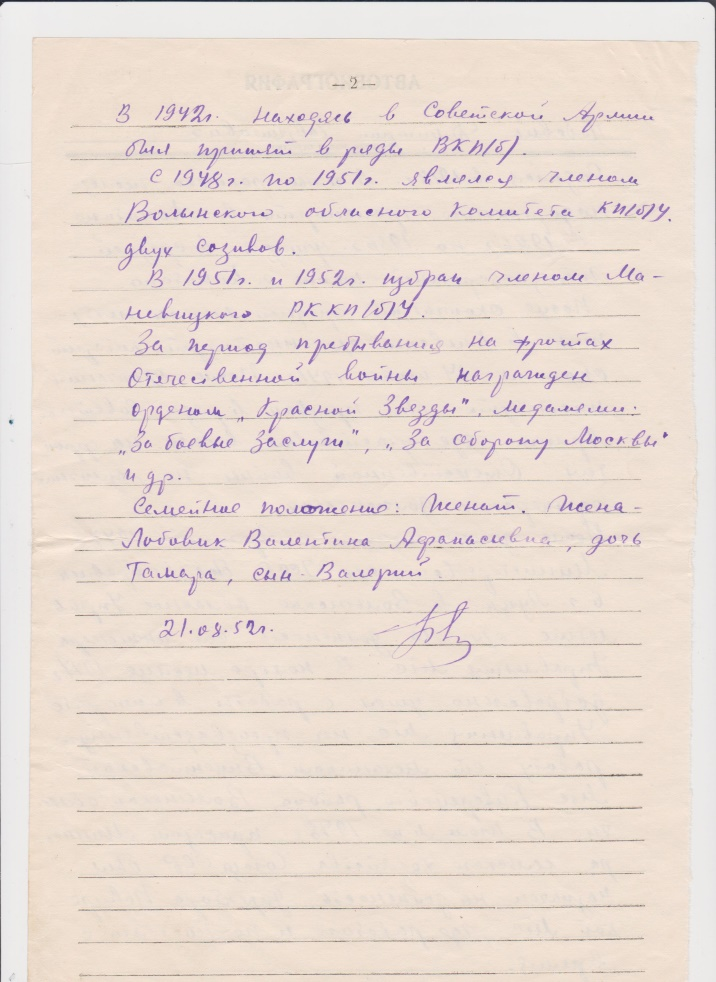 — 2 —
В 1942г. находясь в Советской Армии
был принят в ряды ВКП/б/.
С 1948г. по 1951г. являлся членом
Волынского обласного Комитета КП/б/У.
двух созивов.
В 1951г. и 1952г. избран членом Ма-
невицкого РК КП/б/У.
За период пребывания на фронтах
Отечественной войны награжден
орденом „Красной Звезды", медалями:
„За боевые Заслуги", „За оборону Москвы"
и др.
Семейное положение: Женат. Жена-
Лобовик Валентина Афанасиевна, дочь
Тамара, сын - Валерий
21.08.52г.